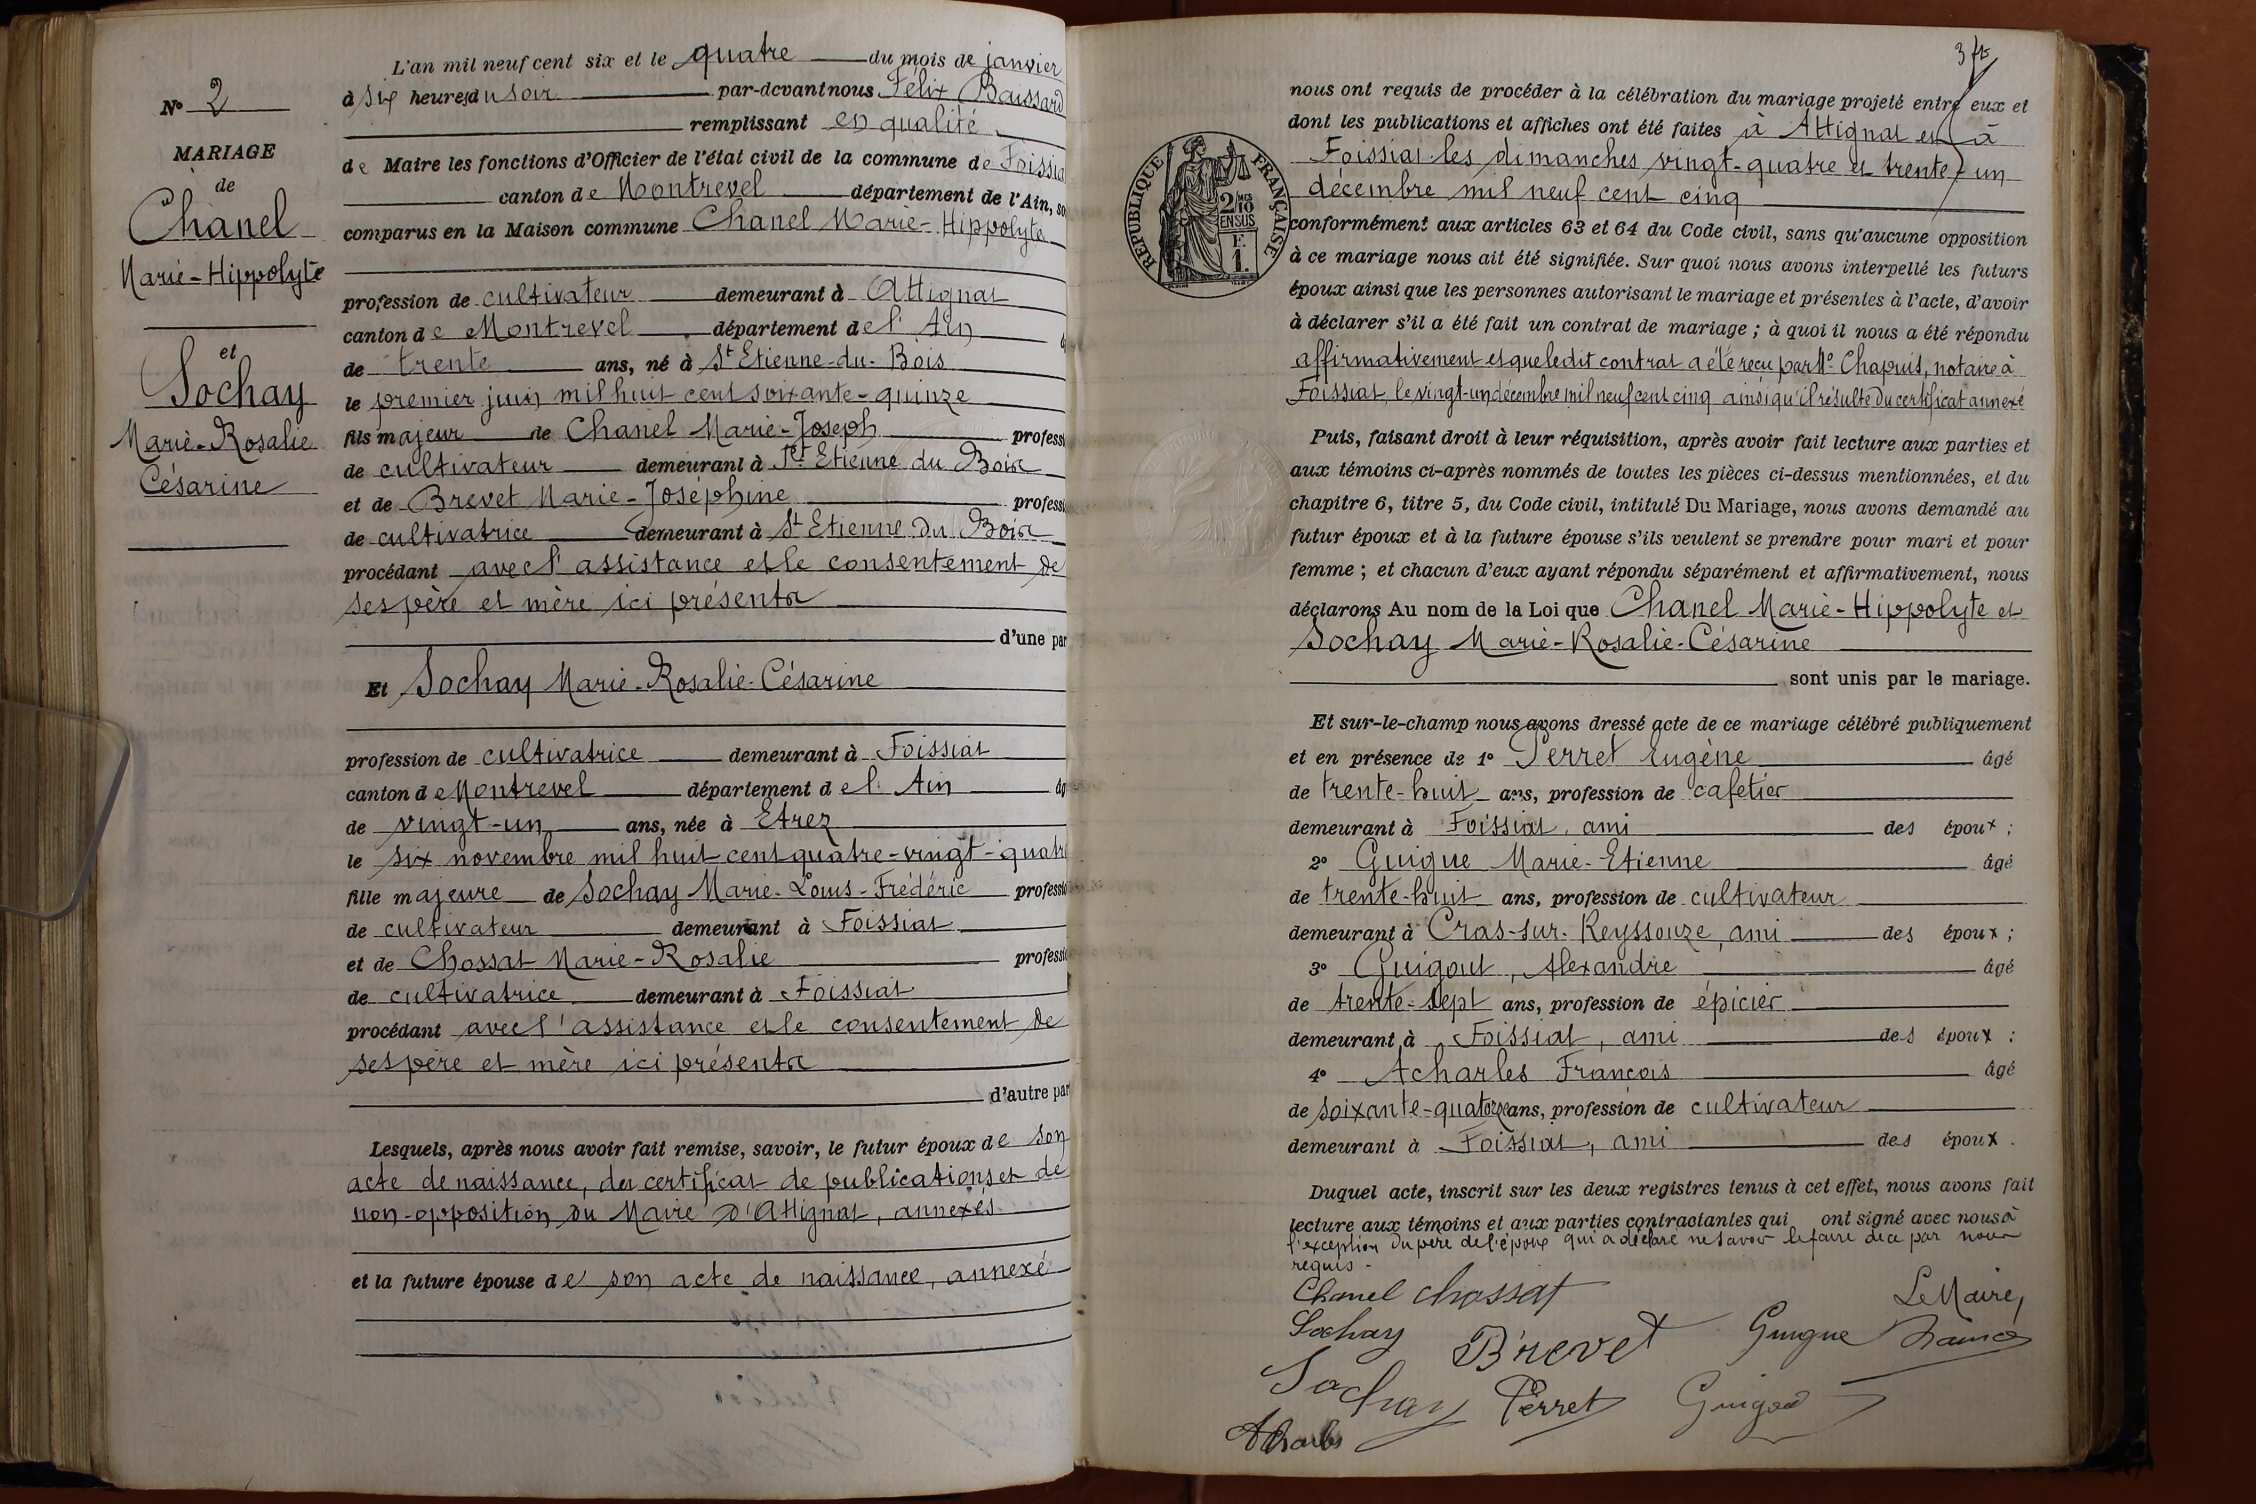 N° 2
MARIAGE
de
Chanel
Marie-Hippolyte
et
Sochay
Marie-Rosalie
Césarine
L'an mil neuf cent six et le quatre du mois de janvier
à six heures du soir par-devant nous Félix
remplissant en qualité
de Maire les fonctions d'Officier de l'état civil de la commune de Foissia
canton de Montrevel département de l'Ain, so
comparus en la Maison commune Chanel Marie-Hippolyte
profession de cultivateur demeurant à Attignat
canton de Montrevel département de l'Ain
de trente ans, né à St Etienne-du-Bois
le premier juin mil huit cent soixante-quinze
fils majeur de Chanel Marie-Joseph professi
de cultivateur demeurant à St Etienne du Bois
et de Brevet Marie-Joséphine professi
de cultivatrice demeurant à St Etienne du Bois
procédant avec l'assistance et le consentement de
ses père et mère ici présents
d'une par
Et Sochay Marie-Rosalie-Césarine
profession de cultivatrice demeurant à Foissiat
canton de Montrevel département de l'Ain âg
de vingt-un ans, née à Etrez
le six novembre mil huit cent quatre-vingt-quatre
fille majeure de Sochay Marie-Louis-Frédéric professio
de cultivateur demeurant à Foissiat
et de Chossat Marie-Rosalie professio
de cultivatrice demeurant à Foissiat
procédant avec l'assistance et le consentement de
ses père et mère ici présents
d'autre par
Lesquels, après nous avoir fait remise, savoir, le futur époux de son
acte de naissance, du certificat de publications et de
non-opposition du Maire d'Attignat, annexés
et la future épouse de son acte de naissance, annexé
3
RÉPUBLIQUE FRANÇAISE
2/10
EN SUS
1.
nous ont requis de procéder à la célébration du mariage projeté entre eux et
dont les publications et affiches ont été faites à Attignat et à
Foissiat les dimanches vingt-quatre et trente-un
décembre mil neuf cent cinq
conformément aux articles 63 et 64 du Code civil, sans qu'aucune opposition
à ce mariage nous ait été signifiée. Sur quoi nous avons interpellé les futurs
époux ainsi que les personnes autorisant le mariage et présentes à l'acte, d'avoir
à déclarer s'il a été fait un contrat de mariage ; à quoi il nous a été répondu
affirmativement et que ledit contrat a été reçu par Me Chapuis, notaire à
Foissiat, le vingt-un décembre mil neuf cent cinq ainsi qu'il résulte du certificat annexé
Puis, faisant droit à leur réquisition, après avoir fait lecture aux parties et
aux témoins ci-après nommés de toutes les pièces ci-dessus mentionnées, et du
chapitre 6, titre 5, du Code civil, intitulé Du Mariage, nous avons demandé au
futur époux et à la future épouse s'ils veulent se prendre pour mari et pour
femme ; et chacun d'eux ayant répondu séparément et affirmativement, nous
déclarons Au nom de la Loi que Chanel Marie-Hippolyte et
Sochay Marie-Rosalie-Césarine
sont unis par le mariage.
Et sur-le-champ nous avons dressé acte de ce mariage célébré publiquement
et en présence de 1° Perret Eugène âgé
de trente-huit ans, profession de cafetier
demeurant à Foissiat, ami des époux ;
2° Guigue Marie-Etienne âgé
de trente-huit ans, profession de cultivateur
demeurant à Cras-sur-Reyssouze, ami des époux ;
3° Guigout, Alexandre âgé
de trente-sept ans, profession de épicier
demeurant à Foissiat, ami des époux ;
4° Acharles François âgé
de soixante-quatorze ans, profession de cultivateur
demeurant à Foissiat, ami des époux.
Duquel acte, inscrit sur les deux registres tenus à cet effet, nous avons fait
lecture aux témoins et aux parties contractantes qui ont signé avec nous à
l'exception du père de l'époux qui a déclaré ne savoir le faire de ce par nous
requis.
Chanel Chossat Le Maire,
Sochay Brevet Guigue
Sochay Perret
Acharles